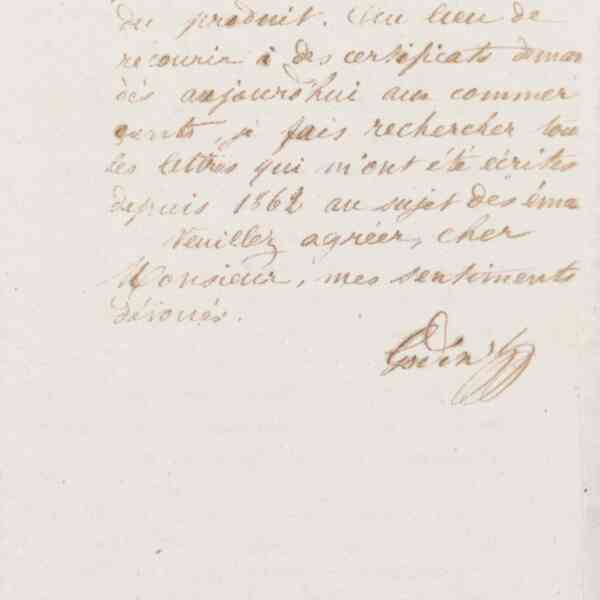 du produit. Au lieu de
recourir à des certificats deman
dés aujourd'hui aux commer
çants, je fais rechercher tou
les lettres qui m'ont été écrites
depuis 1862 au sujet des éma
Veuillez agréer, cher
Monsieur, mes sentiments
dévoués.
Godin